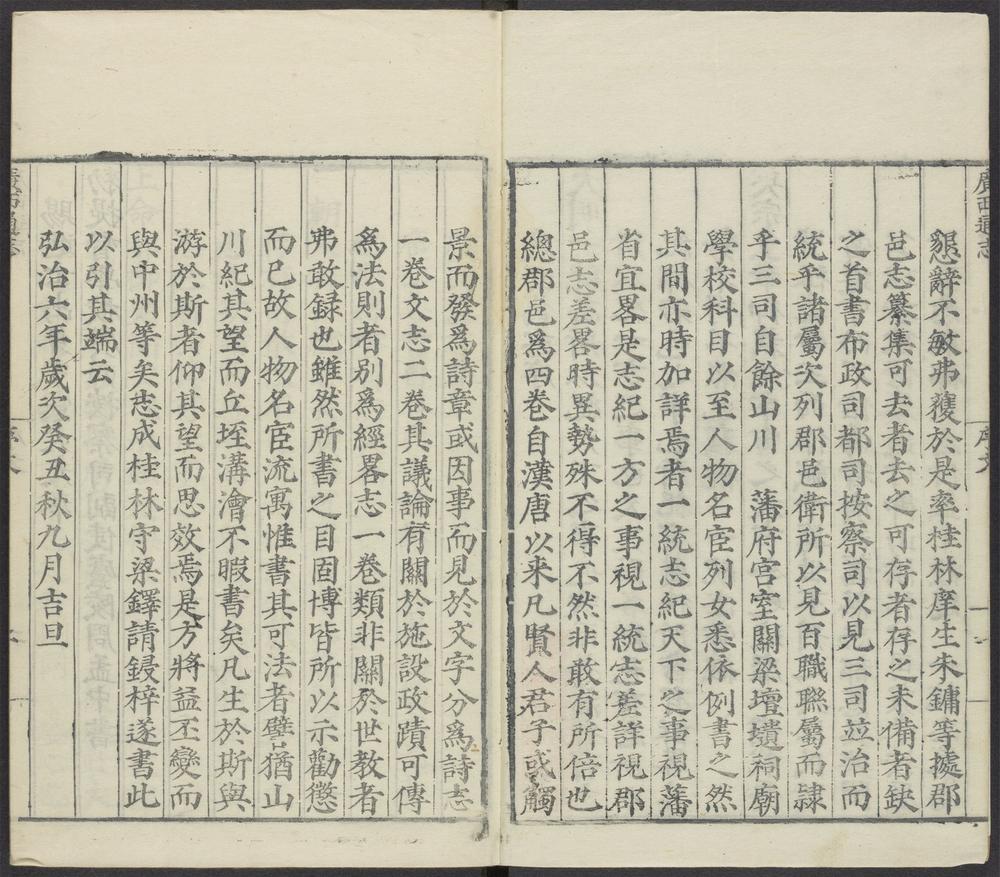 廣西通志
懇辭不敏弗獲於是率桂林庠生朱鏞等據郡
邑志纂集可去者去之可存者存之未備者缺
之首書布政司都司按察司以見三司竝治而
統乎諸屬次列郡邑衛所以見百職聯屬而隷
乎三司自餘山川 藩府宫室關梁壇壝祠廟
學校科目以至人物名宦列女悉依例書之然
其間亦時加詳焉者一統志紀天下之事視藩
省宜畧是志紀一方之事視一統志差詳視郡
邑志差畧時異勢殊不得不然非敢有所倍也
總郡邑爲四卷自漢唐以来凡賢人君子或觸
景而發爲詩章或因事而見於文字分爲詩志
一卷文志二卷其議論有關於施設政蹟可傳
爲法則者别爲經畧志一卷類非關於世教者
弗敢録也雖然所書之目固博皆所以示勸懲
而已故人物名宦流寓惟書其可法者譬猶山
川紀其望而丘垤溝澮不暇書矣凡生於斯與
游於斯者仰其望而思效焉是方將益丕變而
與中州等矣志成桂林守梁鐸請鋟梓遂書此
以引其端云
弘治六年歲次癸丑秋九月吉旦